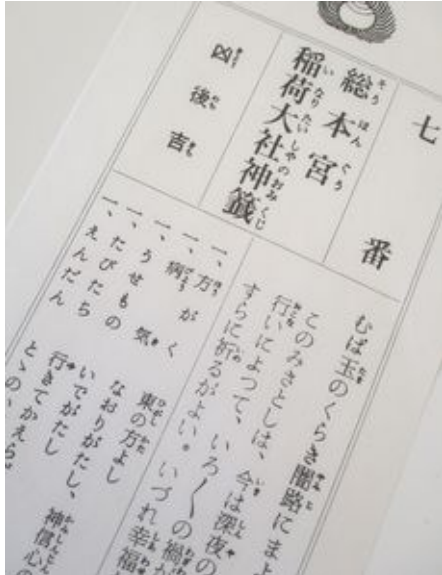 七番
総本宮
稲荷大社神籤
凶後吉
むば玉のくらき闇路にまよ
このみさとしは、今は深夜の
行いによって、いろ〳〵の禍が
すらに祈るがよい。いづれ幸福
一、方がく 東の方よし
一、病気 なおりがたし、神信心の
一、うせもの いでがたし
一、たびたち 行きてかえら
一、えんだん とゝの